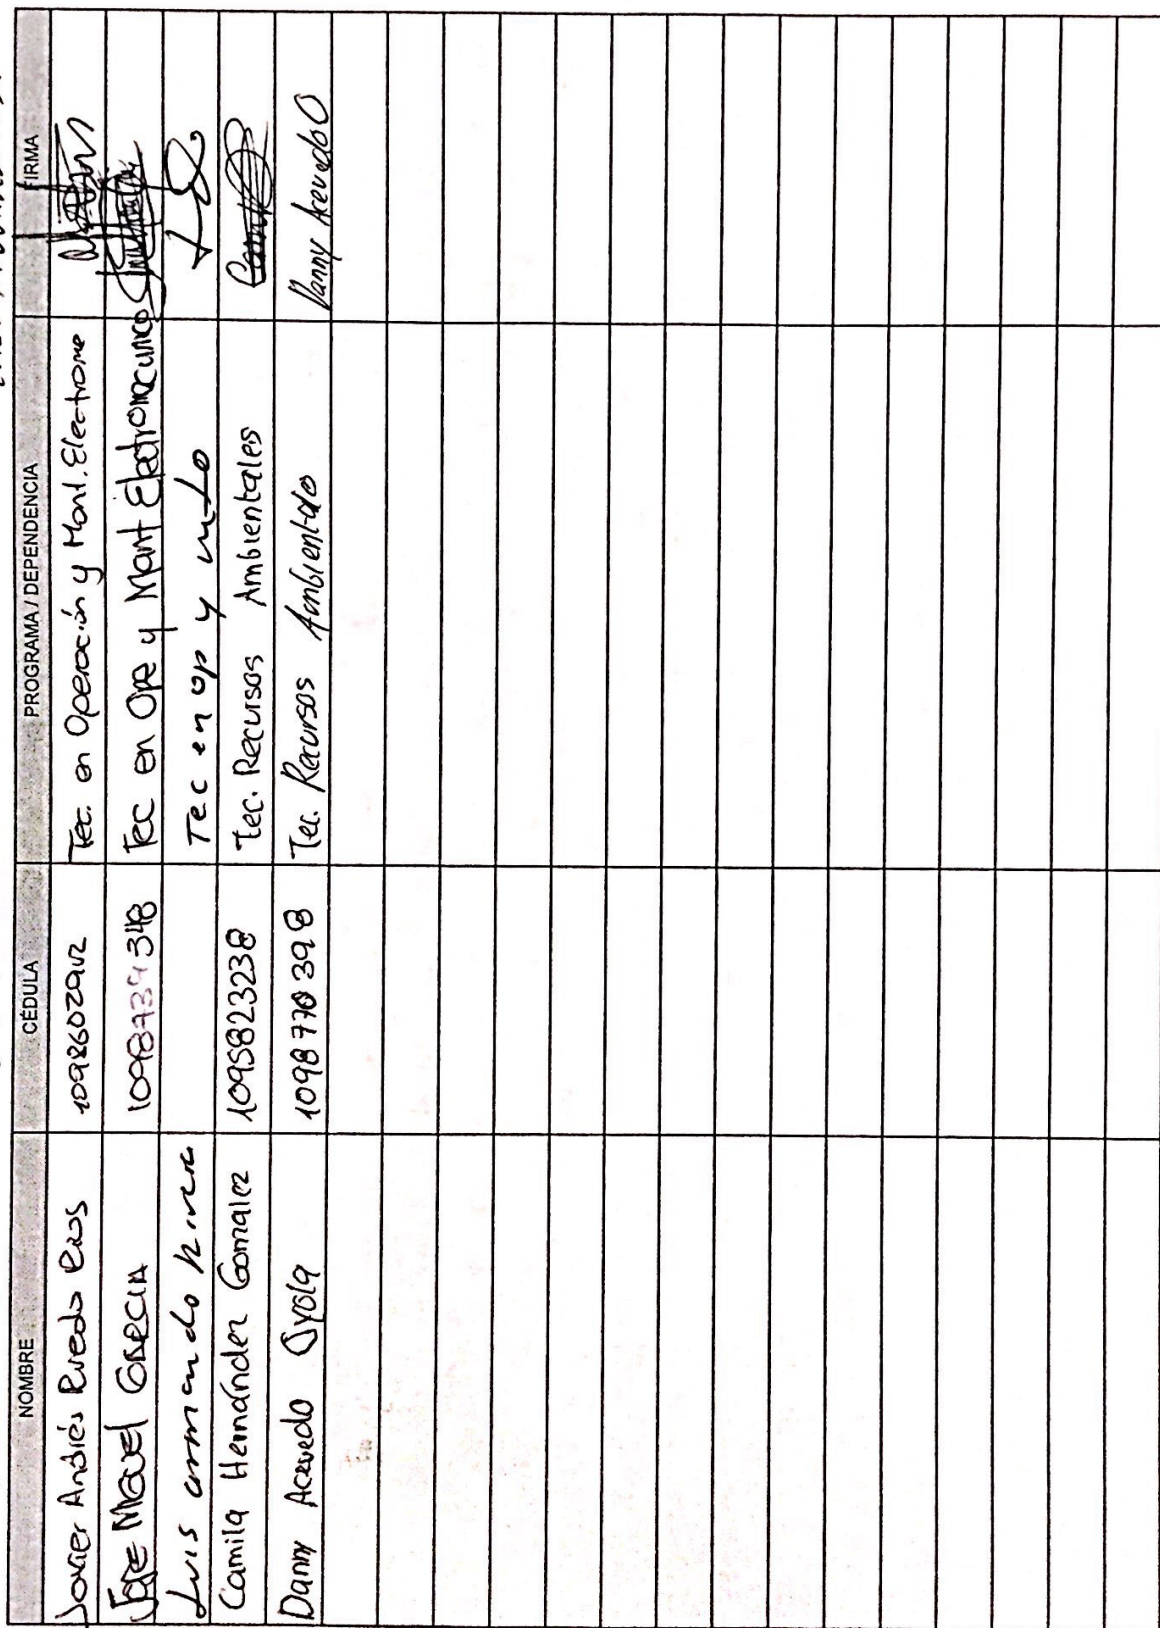 NOMBRE CÉDULA PROGRAMA / DEPENDENCIA FIRMA
Javier Andrés Rueda 109860 Tec. en Operación y Mant. Electrome
Jose Miguel GARCIA 1098739348 Tec en Ope y Mant Electromecanico
Luis armando Tec en op y mto
Camila Hernández Gonzalez 1095823238 Tec. Recursos Ambientales
Danny Acevedo Oyola 1098770398 Tec. Recursos Ambientale Danny Acevedo O